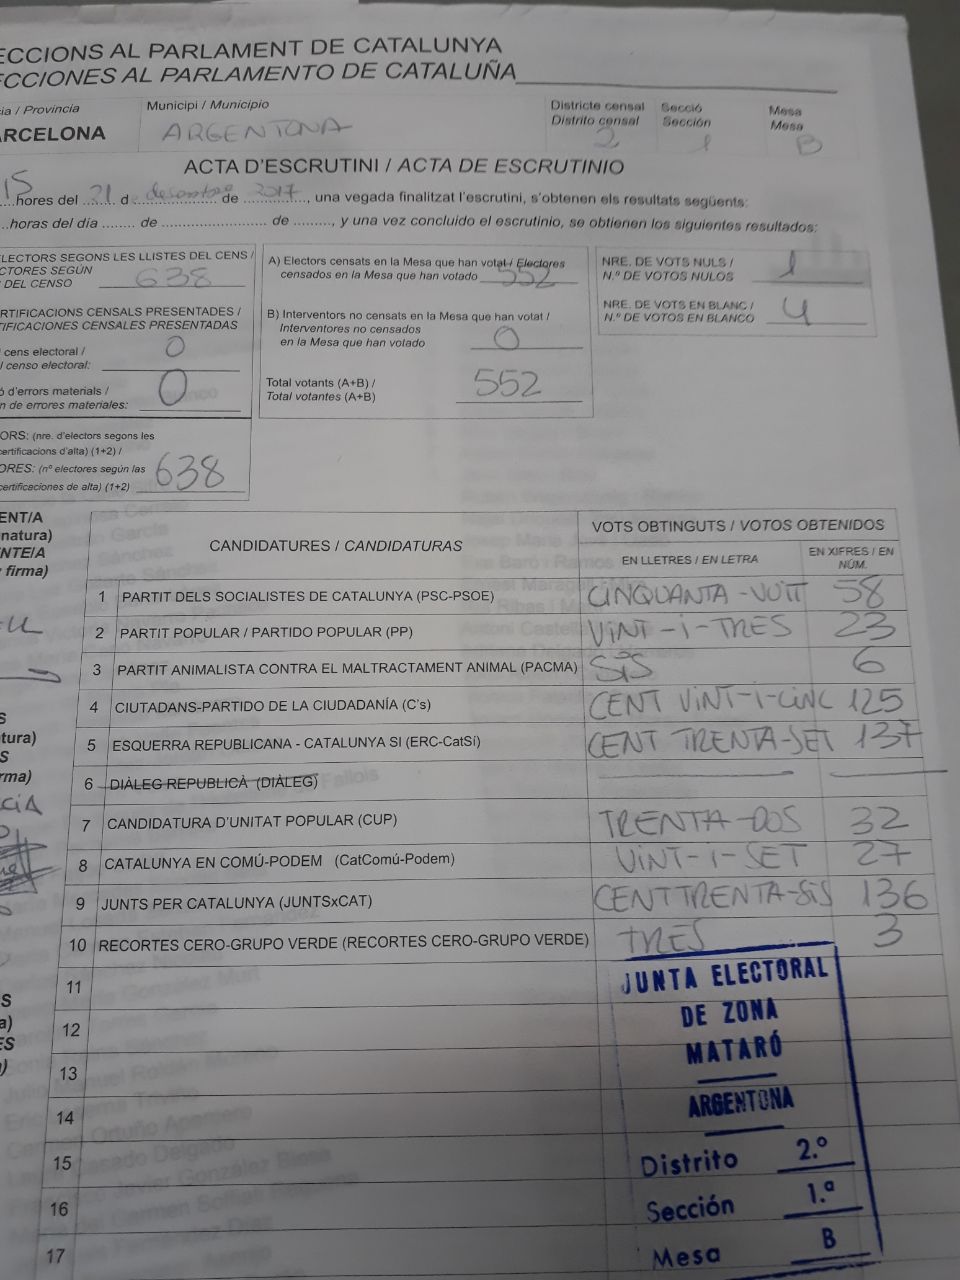 ECCIONS AL PARLAMENT DE CATALUNYA
CCIONES AL PARLAMENTO DE CATALUÑA
ia / Provincia
Municipi / Municipio
Districte censal
Distrito censal
Secció
Sección
Mesa
Mesa
ARCELONA
ARGENTONA
2
1
B
ACTA D'ESCRUTINI / ACTA DE ESCRUTINIO
15 hores del 21 d de desembre de 2017, una vegada finalitzat l'escrutini, s'obtenen els resultats següents:
horas del día ........ de ........................ de .........., y una vez concluido el escrutinio, se obtienen los siguientes resultados:
LECTORS SEGONS LES LLISTES DEL CENS /
CTORES SEGÚN
DEL CENSO 638
RTIFICACIONS CENSALS PRESENTADES /
TIFICACIONES CENSALES PRESENTADAS
cens electoral /
l censo electoral: 0
ó d'errors materials /
n de errores materiales: 0
ORS: (nre. d'electors segons les
certificacions d'alta) (1+2) /
ORES: (nº electores según las
certificaciones de alta) (1+2) 638
A) Electors censats en la Mesa que han votat / Electores
censados en la Mesa que han votado 552
B) Interventors no censats en la Mesa que han votat /
Interventores no censados
en la Mesa que han votado 0
Total votants (A+B) /
Total votantes (A+B) 552
NRE. DE VOTS NULS /
N.º DE VOTOS NULOS 1
NRE. DE VOTS EN BLANC /
N.º DE VOTOS EN BLANCO 4
ENT/A
natura)
NTE/A
firma)
CANDIDATURES / CANDIDATURAS
VOTS OBTINGUTS / VOTOS OBTENIDOS
EN LLETRES / EN LETRA
EN XIFRES / EN
NÚM.
1 PARTIT DELS SOCIALISTES DE CATALUNYA (PSC-PSOE) CINQUANTA-VUIT 58
2 PARTIT POPULAR / PARTIDO POPULAR (PP) VINT-i-TRES 23
3 PARTIT ANIMALISTA CONTRA EL MALTRACTAMENT ANIMAL (PACMA) SiS 6
4 CIUTADANS-PARTIDO DE LA CIUDADANÍA (C's) CENT ViNT-i-CiNC 125
5 ESQUERRA REPUBLICANA - CATALUNYA SI (ERC-CatSí) CENT TRENTA-SET 137
6 DIÀLEG REPUBLICÀ (DIÀLEG)
7 CANDIDATURA D'UNITAT POPULAR (CUP) TRENTA-DOS 32
8 CATALUNYA EN COMÚ-PODEM (CatComú-Podem) ViNT-i-SET 27
9 JUNTS PER CATALUNYA (JUNTSxCAT) CENT TRENTA-SiS 136
10 RECORTES CERO-GRUPO VERDE (RECORTES CERO-GRUPO VERDE) TRES 3
11
12
13
14
15
16
17
JUNTA ELECTORAL
DE ZONA
MATARÓ
ARGENTONA
Distrito 2.º
Sección 1.ª
Mesa B